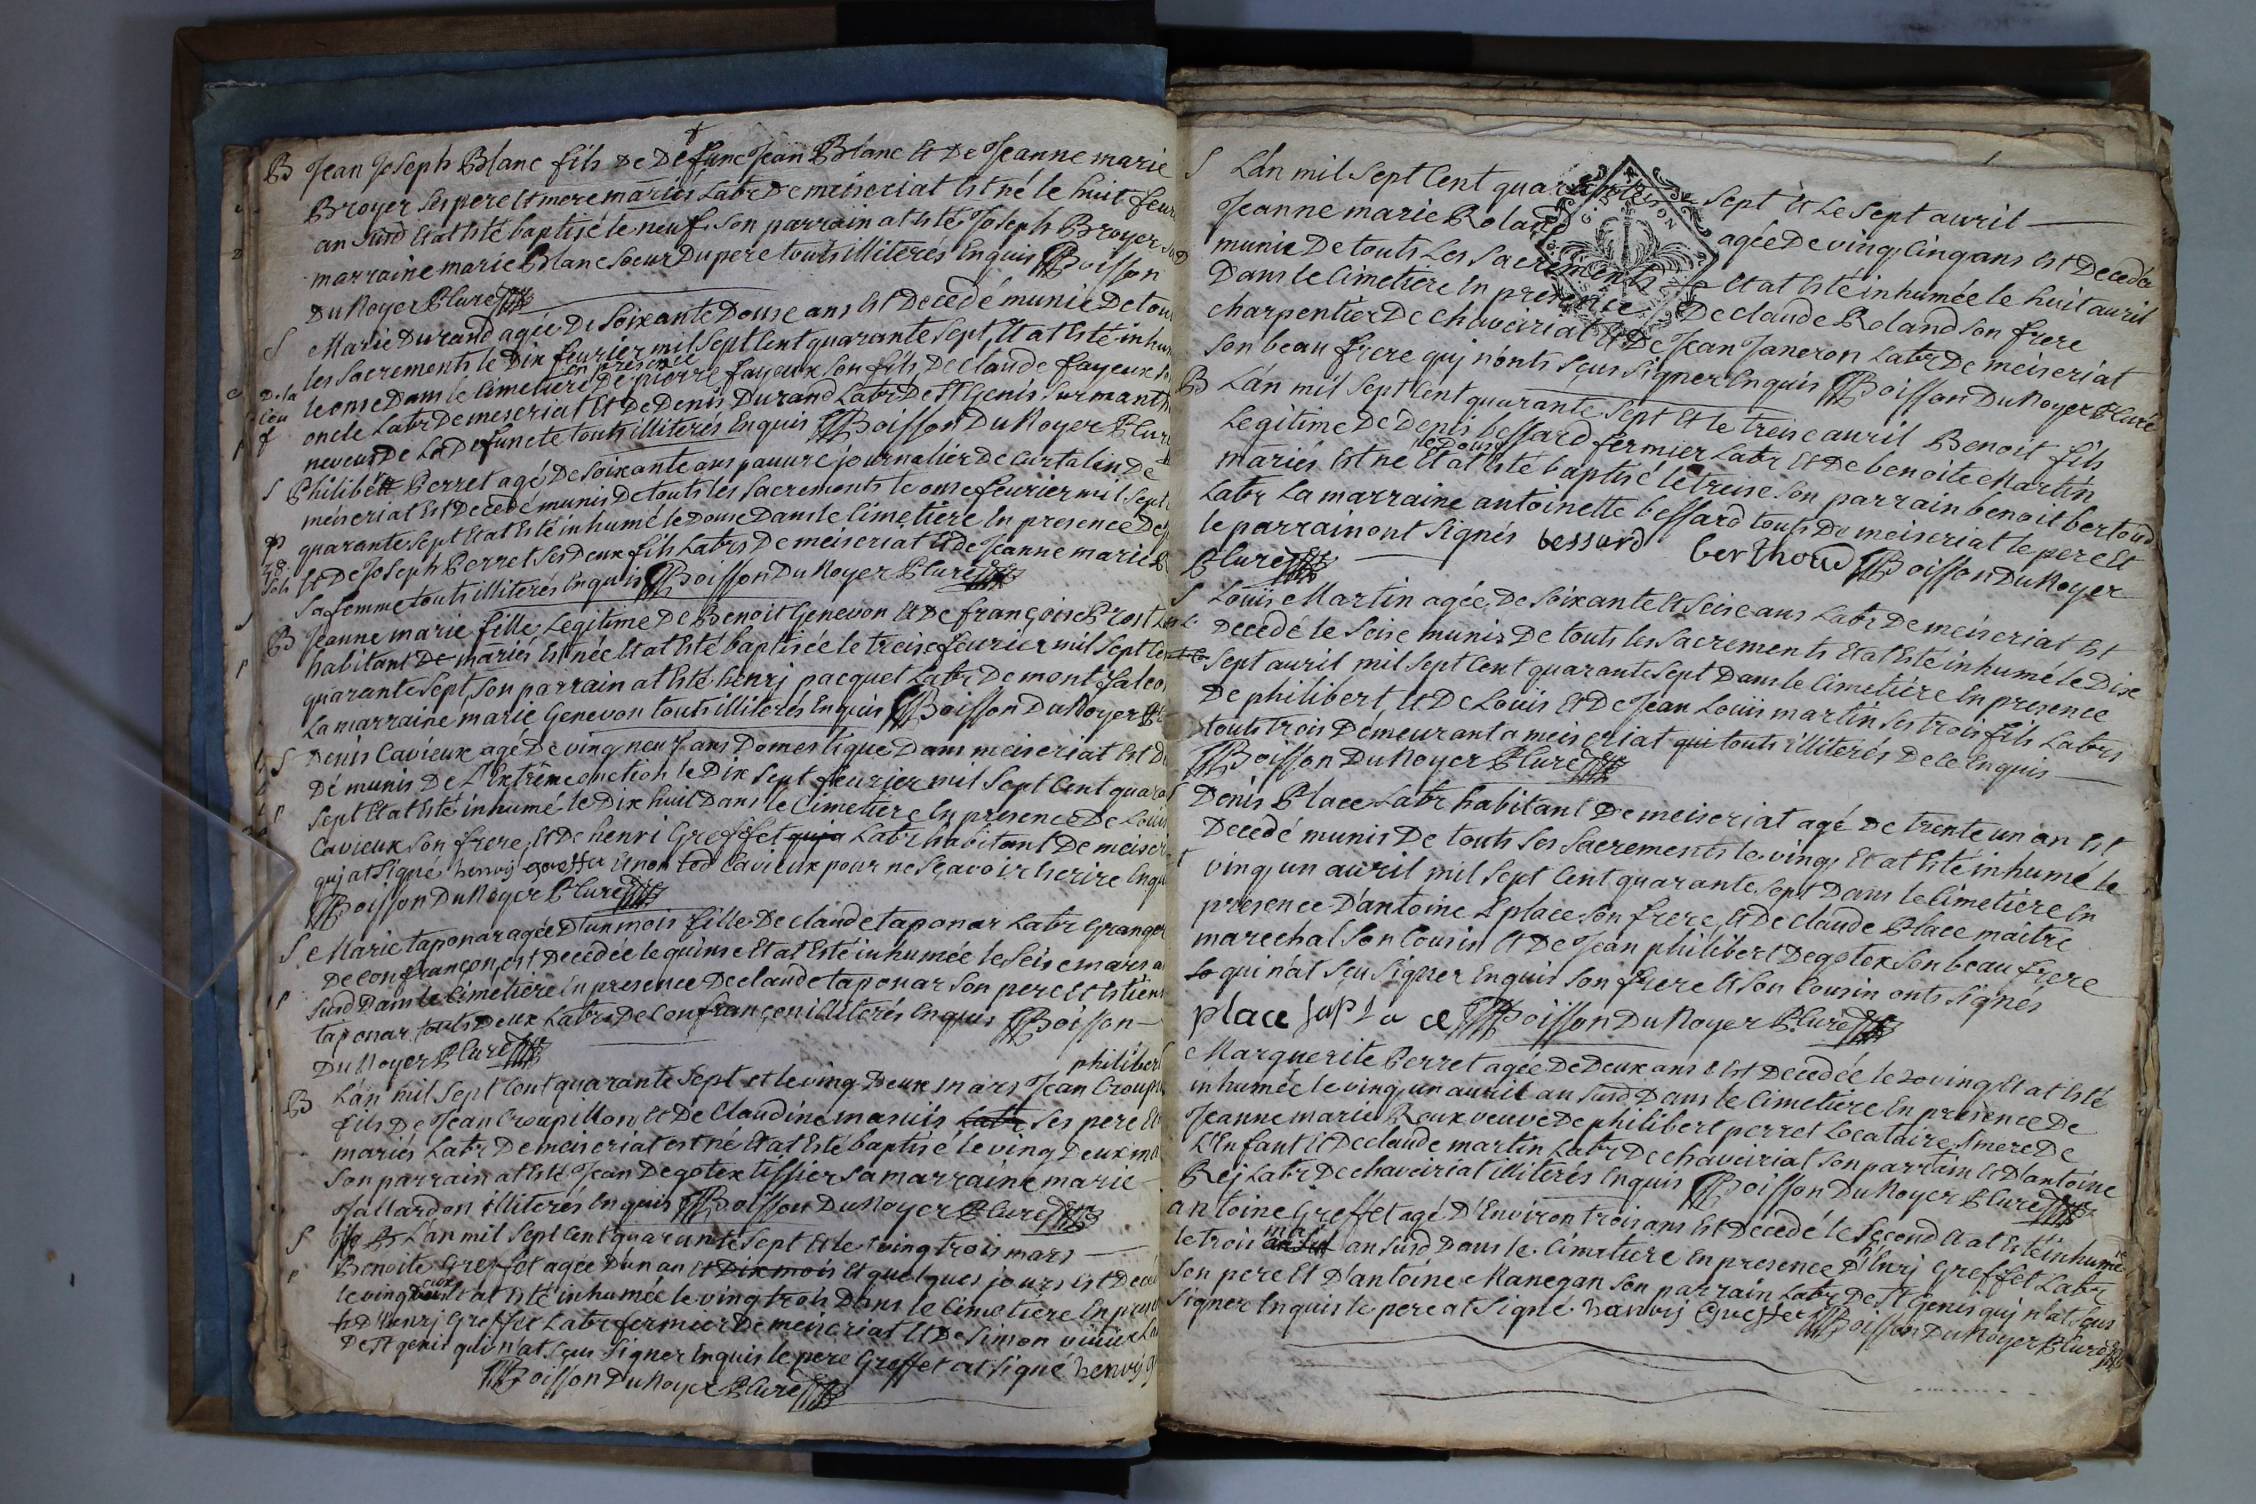 B Jean Joseph Blanc fils De Defunc Jean Blanc Et De Jeanne marie
Broyer Ses pere Et mere mariés Labr De meiseriat Est né le huit feur
an Susd Et at Esté baptisé le neuf. Son parrain at Esté Joseph Broyer Sa
marraine marie Blanc Soeur Du pere touts illiterés Enquis Boisson
Du Noyer Curé
S Marie Durand agée De Soixante Douse ans Est Decedé munie De tou
les Sacrements le Dix feurier mil Sept Cent quarante Sept, Et at Esté inhu
le onse Dans le Cimetiere En presence De pierre fayeux Son fils, De claude fayeux
oncle Labr De meseriat Et De Denis Durand Labr De St Genis Sur manth
neveur De La Defuncte touts illiterés Enquis Boisson Du Noyer Curé
S Philibert Perret agé De Soixante ans pauure journalier De Curtalin De
méiseriat Est Decedé munis De touts les Sacrements le onse feurier mil Sept
quarante Sept Et at Esté inhumé le Douse Dans le Cimetiere En presence De
Et De Joseph Perret Ses Deux fils Labrs De meiseriat Et De Jeanne marie
Sa femme touts illiterés Enquis Boisson Du Noyer Curé
B Jeanne marie fille Legitime De Benoit Genevon Et De françoise Prost
habitant De mariés Est née Et at Esté baptisée le treise feurier mil Sept Cent
quarante Sept, Son parrain at Esté henrj pacquet Labr De montfalcon
La marraine marie Genevon touts illiterés Enquis Boisson Du Noyer
S Denis Cavieux agé De ving neuf ans Domestique Dans meiseriat Est De
Dé munis De L'Extrême onction le Dix Sept feurier mil Sept Cent quara
Sept Et at Esté inhumé le Dix huit Dans le Cimetiere En presence De Louis
Cavieux Son frere, Et De henri Greffet Labr habitant De meiseri
quj at Signé henrij greffet Et non led Cavieux pour ne Sçavoir Escrire Enqu
Boisson Du Noyer Curé
S Marie taponar agée D'un mois fille De claude taponar Labr Granger
De Confrançon, est Decedée le quinse Et at Esté inhumée le Seise mars an
Susd Dans le Cimetiere En presence De claude taponar Son pere Et Estien
taponar touts Deux Labrs De Confrançon illiterés Enquis Boisson
Du Noyer Curé
philibert
B L'an mil Sept Cent quarante Sept et le ving Deux mars Jean Croupil
fils De Jean Croupillon, Et De Claudine masuis Labr Ses pere Et
mariés Labr De meiseriat est né Et at Esté baptisé le ving Deux ma
Son parrain at Esté Jean Degotex tissier Sa marraine marie
Jallardon illiterés Enquis Boisson Du Noyer Curé
S L'an mil Sept Cent quarante Sept Et le ving trois mars
Benoite Greffet agée D'un an et Dix mois Et quelques jours est Deced
le ving deux Et at Esté inhumée le ving trois Dans le Cimetiere En prese
D'henrj Greffet Labr fermier De meiseriat Et De Simon vieux La
De St genis qui n'at Sçus Signer Enquis le pere Greffet at Signé henrij g
Boisson Du Noyer Curé
S L'an mil Sept Cent quarante Sept Et Le Sept auril
Jeanne marie Roland agée De ving, Cinq ans Est Decedée
munie De touts Les Sacrements Et at Esté inhumée le huit auril
Dans le Cimetiere En presence De claude Roland Son frere
charpentier De chaveiriat Et De Jean Janeron Labr De méiseriat
Son beau frere quj n'onts Sçus Signer Enquis Boisson Du Noyer Curé
B L'an mil Sept Cent quarante Sept Et le treise auril Benoit fils
Legitime De Denis bessard fermier Labr Et De benoite Martin
mariés Est né le Douse Et at Esté baptisé le treise Son parrain benoit bertoud
Labr La marraine antoinette bessard touts De meiseriat le pere Et
le parrain ont Signés bessard berthoud Boisson Du Noyer
Curé
S Louïs Martin agée De Soixante Et Seise ans Labr De meiseriat Est
Decedé le Seise munis De touts les Sacrements Et at Esté inhumé le Dix
Sept auril mil Sept Cent quarante Sept Dans le Cimetiére En presence
De philibert, Et De Louïs Et De Jean Louïs martin Ses trois fils Labrs
touts trois Demeurant a meiseriat qui touts illiterés De ce Enquis
Boisson Du Noyer Curé
Denis Place Labr habitant De meiseriat agé De trente un an Est
Decedé munis De touts Ses Sacrements le ving, Et at Esté inhumé le
ving, un auril mil Sept Cent quarante Sept Dans le Cimetiere En
presence D'antoine place Son frere, Et De claude Place maitre
marechal Son Cousin Et De Jean philibert Degotex Son beau frere
qui n'at Sçu Signer Enquis Son frere Et Son Cousin onts Signés
place Boisson Du Noyer Curé
Marguerite Perret agée De Deux ans Est Decedée le ving Et at Esté
inhumée le ving, un auril au Susd Dans le Cimetiere En presence De
Jeanne marie Roux veuve De philibert perret Locataire, mere De
L'Enfant Et De claude martin Labr De chaveiriat Son parrain Et D'antoine
Rej Labr De chaveiriat illiterés Enquis Boisson Du Noyer Curé
antoine Greffet agé D'Environ trois ans Est Decedé le Second Et at Esté inhumé
le trois maj an Susd Dans le Cimetiere En presence D'henrj Greffet Labr
Son pere Et D'antoine Manegan Son parrain Labr De St Genis quj n'at Sçus
Signer Enquis le pere at Signé henrij Greffet Boisson Du Noyer Curé